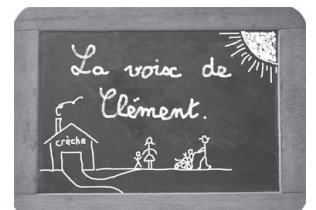 La voix de
Clément.
crèche